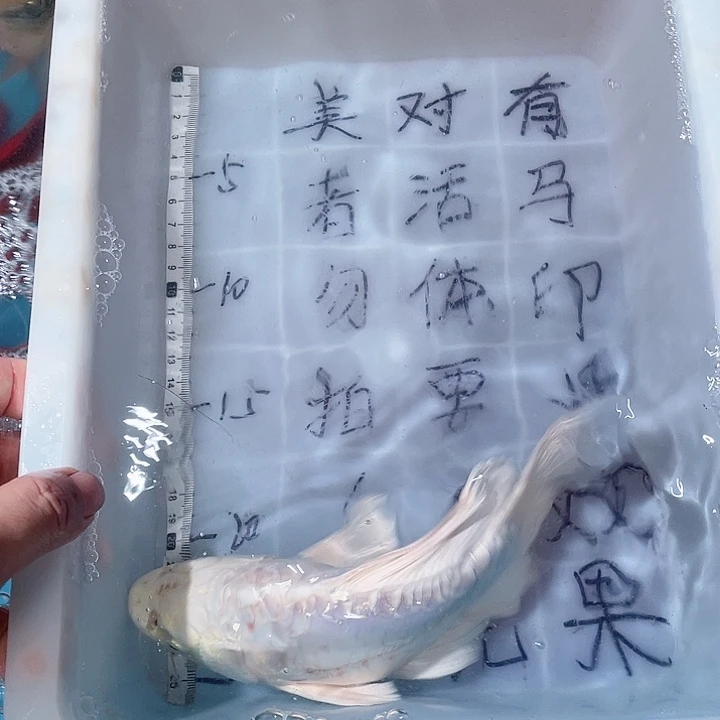 有马印果
对活体要
美者勿拍
-5
-10
-15
-20
1 2 3 4 5 6 7 8 9 10 11 12 13 14 15 18 19 20